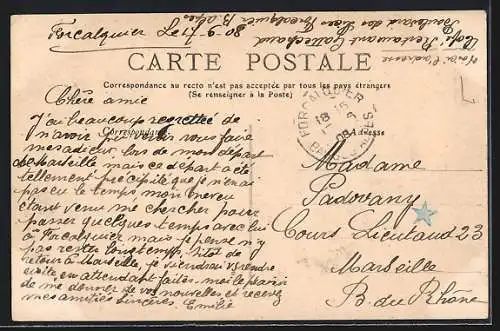 Forcalquier Le 17-9-08
Voici l'adresse
Café Restaurant Gattechaud
Boulevard des Lices Forcalquier B. Alpes
CARTE POSTALE
Correspondance au recto n'est pas acceptée par tous les pays étrangers
(Se renseigner à la Poste)
Correspondance
Adresse
FORCALQUIER
18 15
BASSES ALPES
Chère amie
J'ai beaucoup regretté de
n'avoir pu venir vous faire
mes adieu, lors de mon départ
de Marseille mais ce départ a été
tellement précipité que je n'en ai
pas eu le temps, mon neveu
étant venu me chercher pour
passer quelques temps avec lui
à Forcalquier mais je pense n'y
pas rester longtemps. Sitôt de
retour à Marseille, je viendrai vs rendre
visite, en attendant faites-moi le plaisir
de me donner de vos nouvelles et recevez
mes amitiés sincères. Emilie
Madame
Padovany
Cours Lieutaud 23
Marseille
B. du Rhône